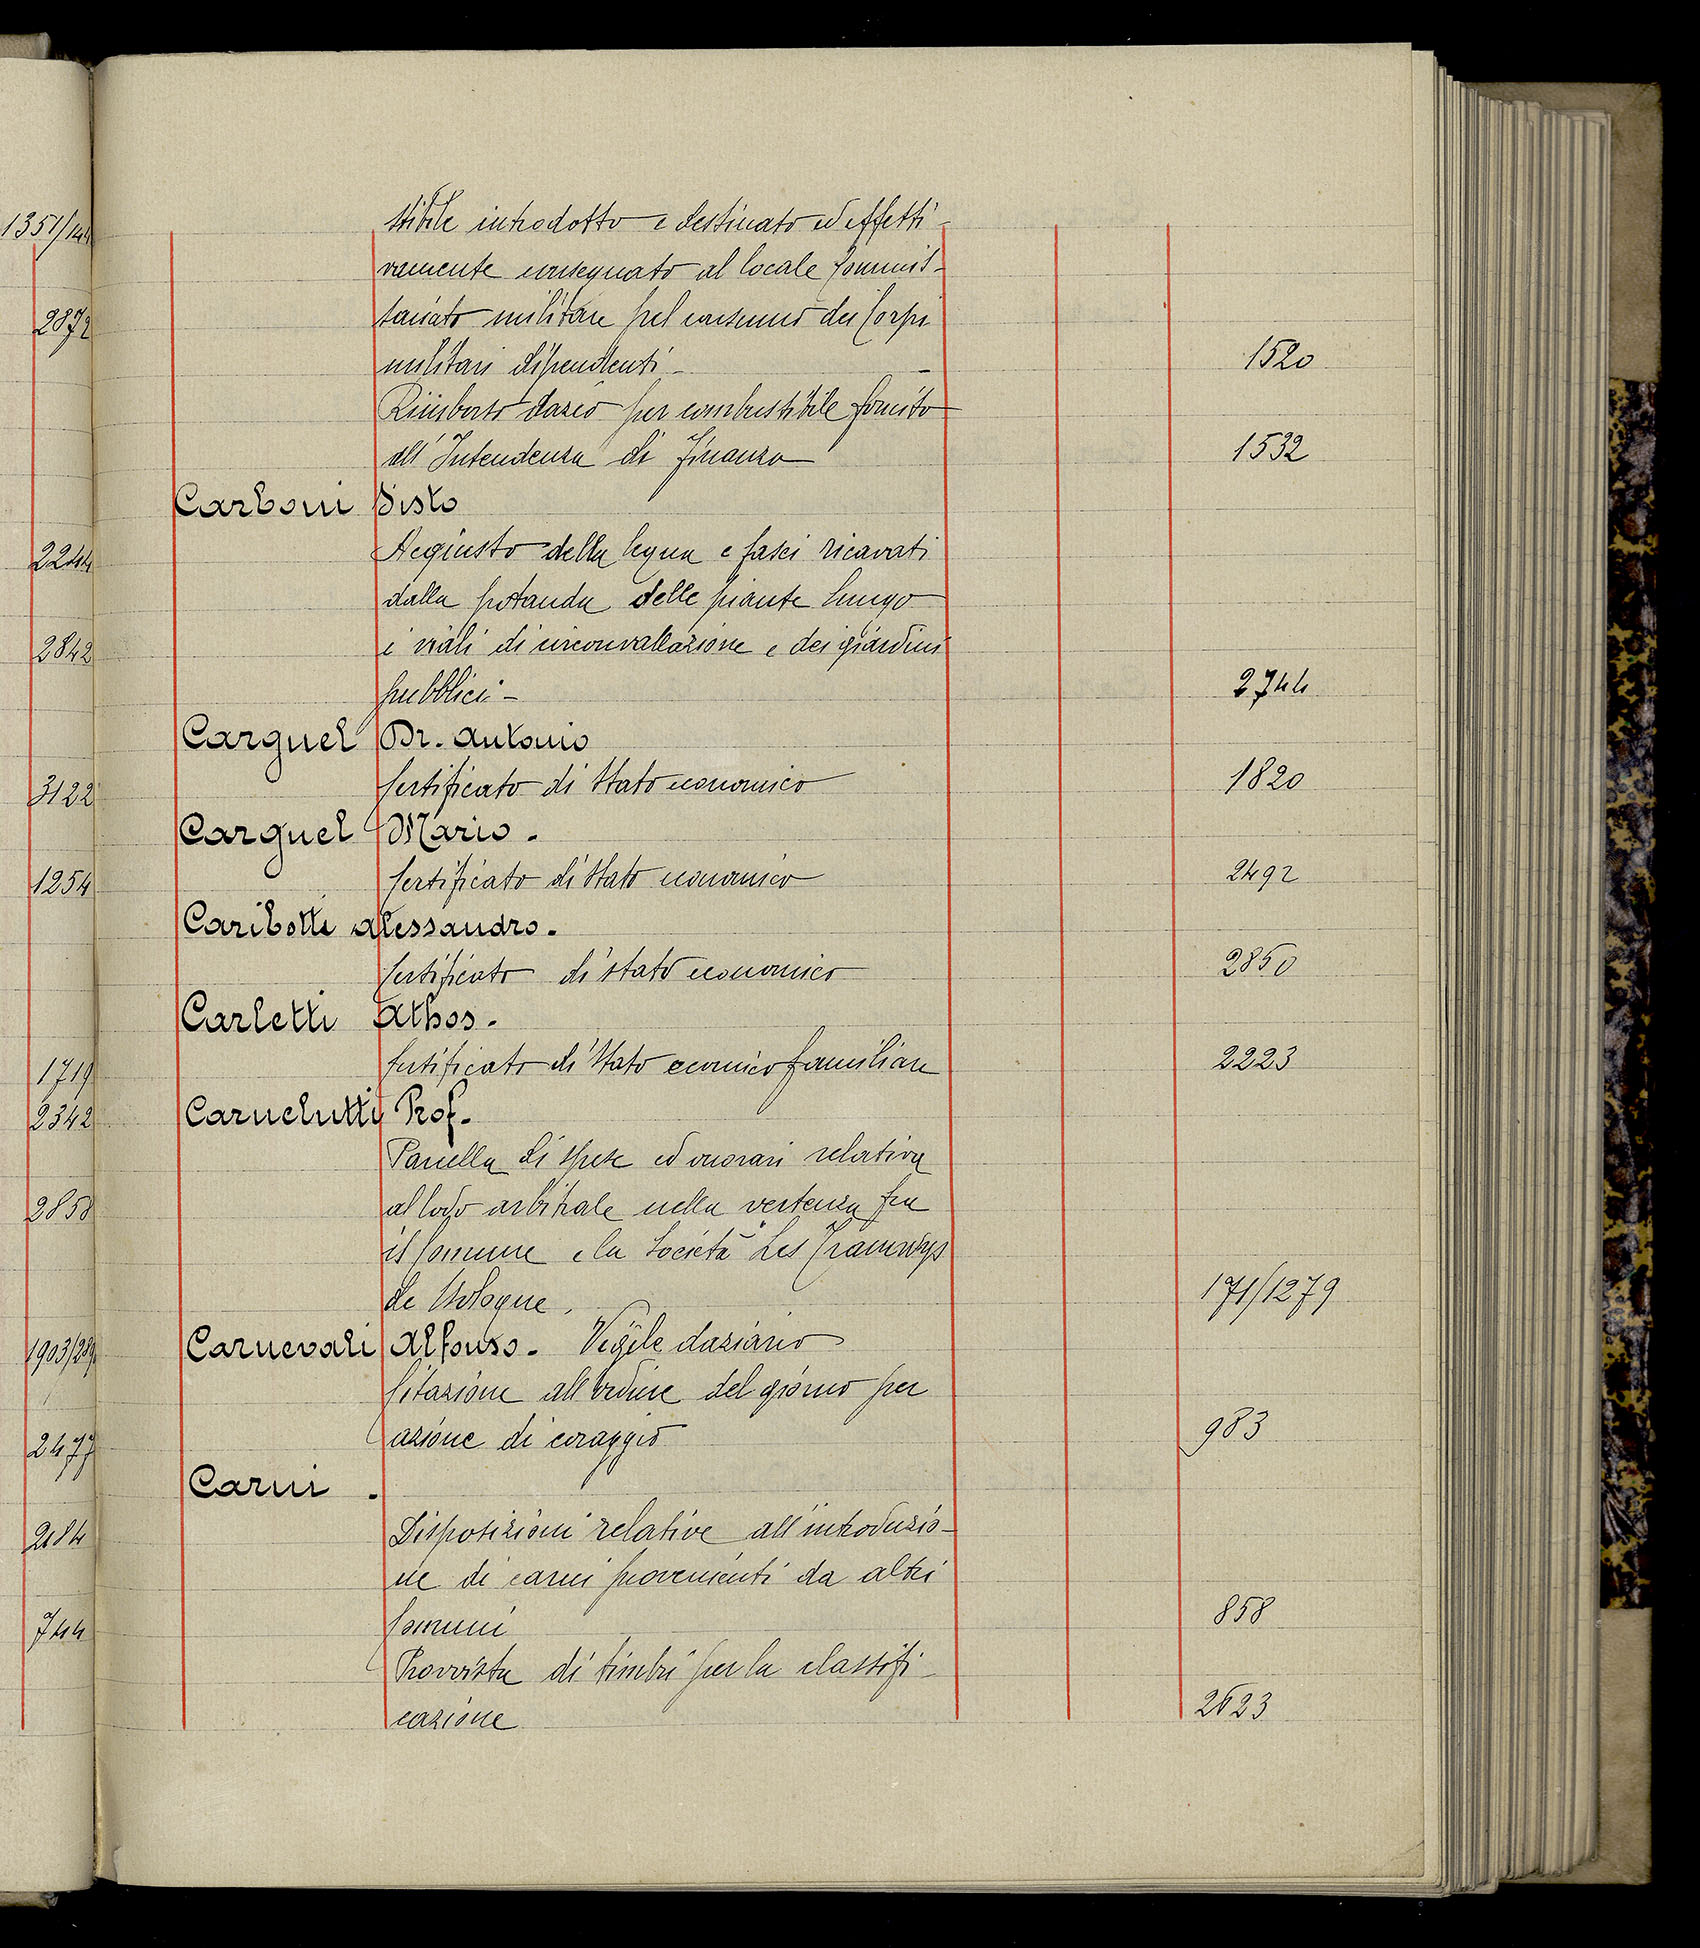 1351/144
2872
2244
2842
3122
1254
1719
2342
2858
2477
2184
744
stibile introdotto e destinato ed effetti-
vamente consegnato al locale Commis-
sariato militare pel consumo dei Corpi
militari dipendenti - 1520
Rimborso dazio per combustibile fornito
all'Intendenza di Finanza 1532
Carboni Sisto
Acquisto della legna e fasci ricavati
dalla potanda delle piante lungo
i viali di circonvallazione e dei giardini
pubblici - 2744
Carguel Dr. Antonio
Certificato di Stato economico 1820
Carguel Mario.
Certificato di Stato economico 2492
Caribotti Alessandro.
Certificato di stato economico 2850
Carletti Athos.
Certificato di Stato ecomico familiare 2223
Carnelutti Prof.
Parcella di spese ed onorari relativa
al lodo arbitrale nella vertenza fra
il Comune e la Società "Les Tramways
de Bologne. 171/1279
Carnevali Alfonso. Vigile daziario
Citazione all'ordine del giorno per
azione di coraggio 983
Carni.
Disposizioni relative all'introduzio-
ne di carni provenienti da altri
Comuni 858
Provvista di timbri per la classifi-
cazione 2623